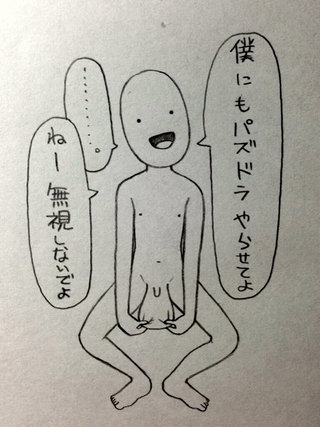 僕にもパズドラやらせてよ
………。
ねー無視しないでよ